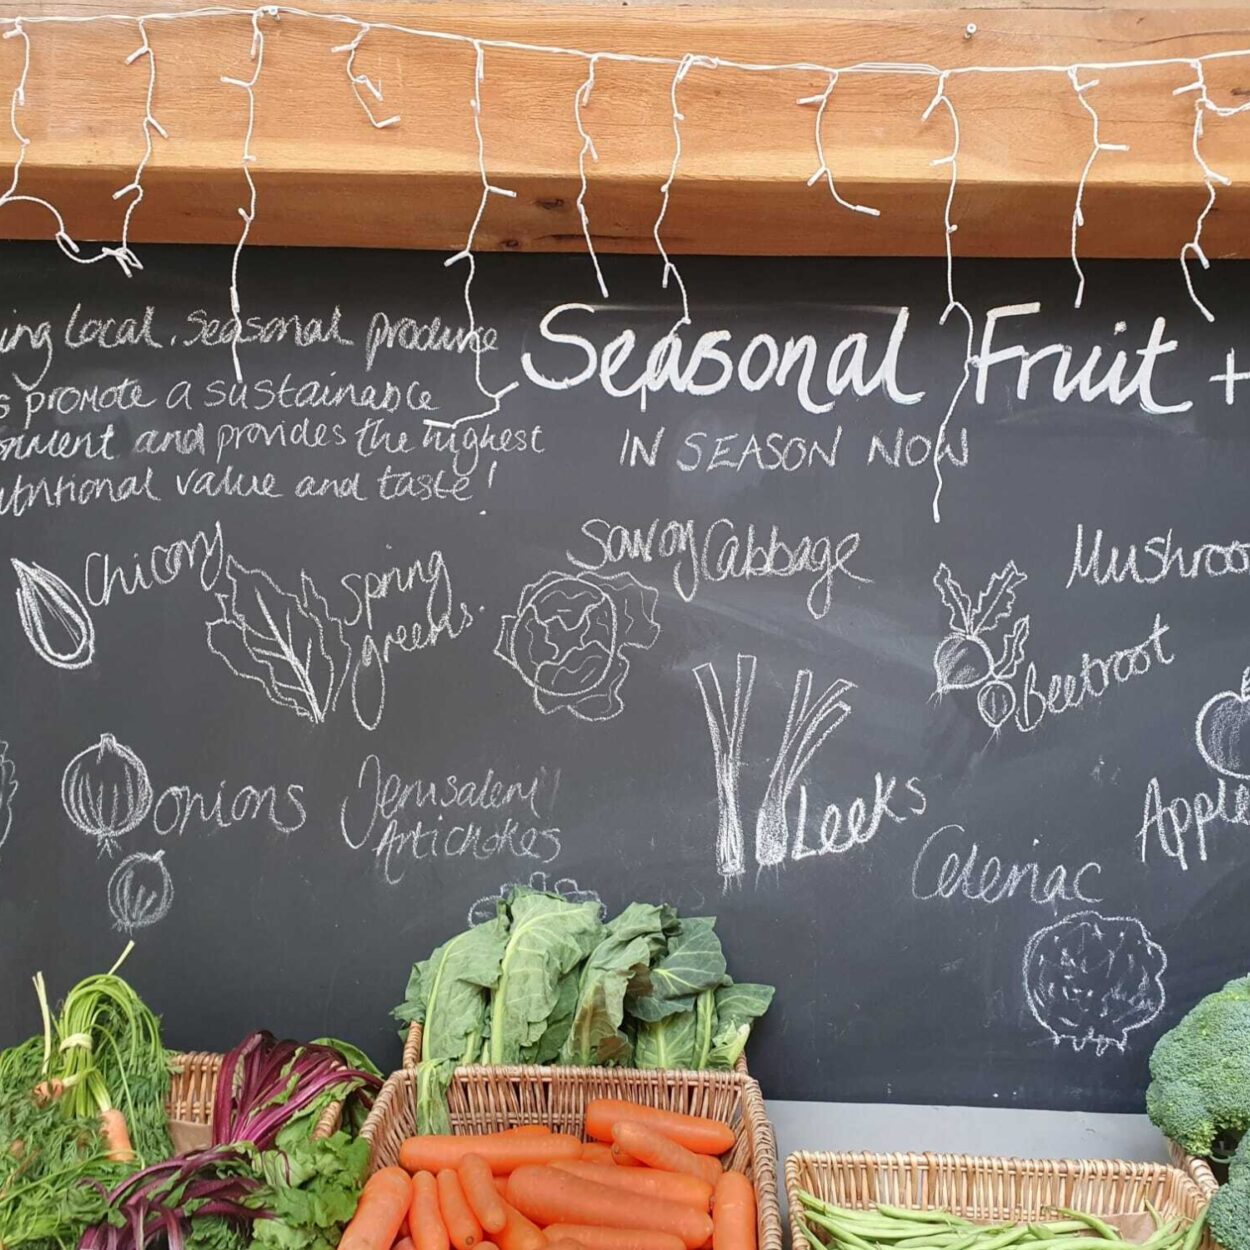 ing Local. Seasonal produce
s promote a sustainable
onment and provides the highest
utritional value and taste!
Seasonal Fruit +
IN SEASON NOW
Chicory
Spring
greens.
Savoy Cabbage
Mushroo
Beetroot
Onions
Jerusalem
Artichokes
Leeks
Apple
Celeriac